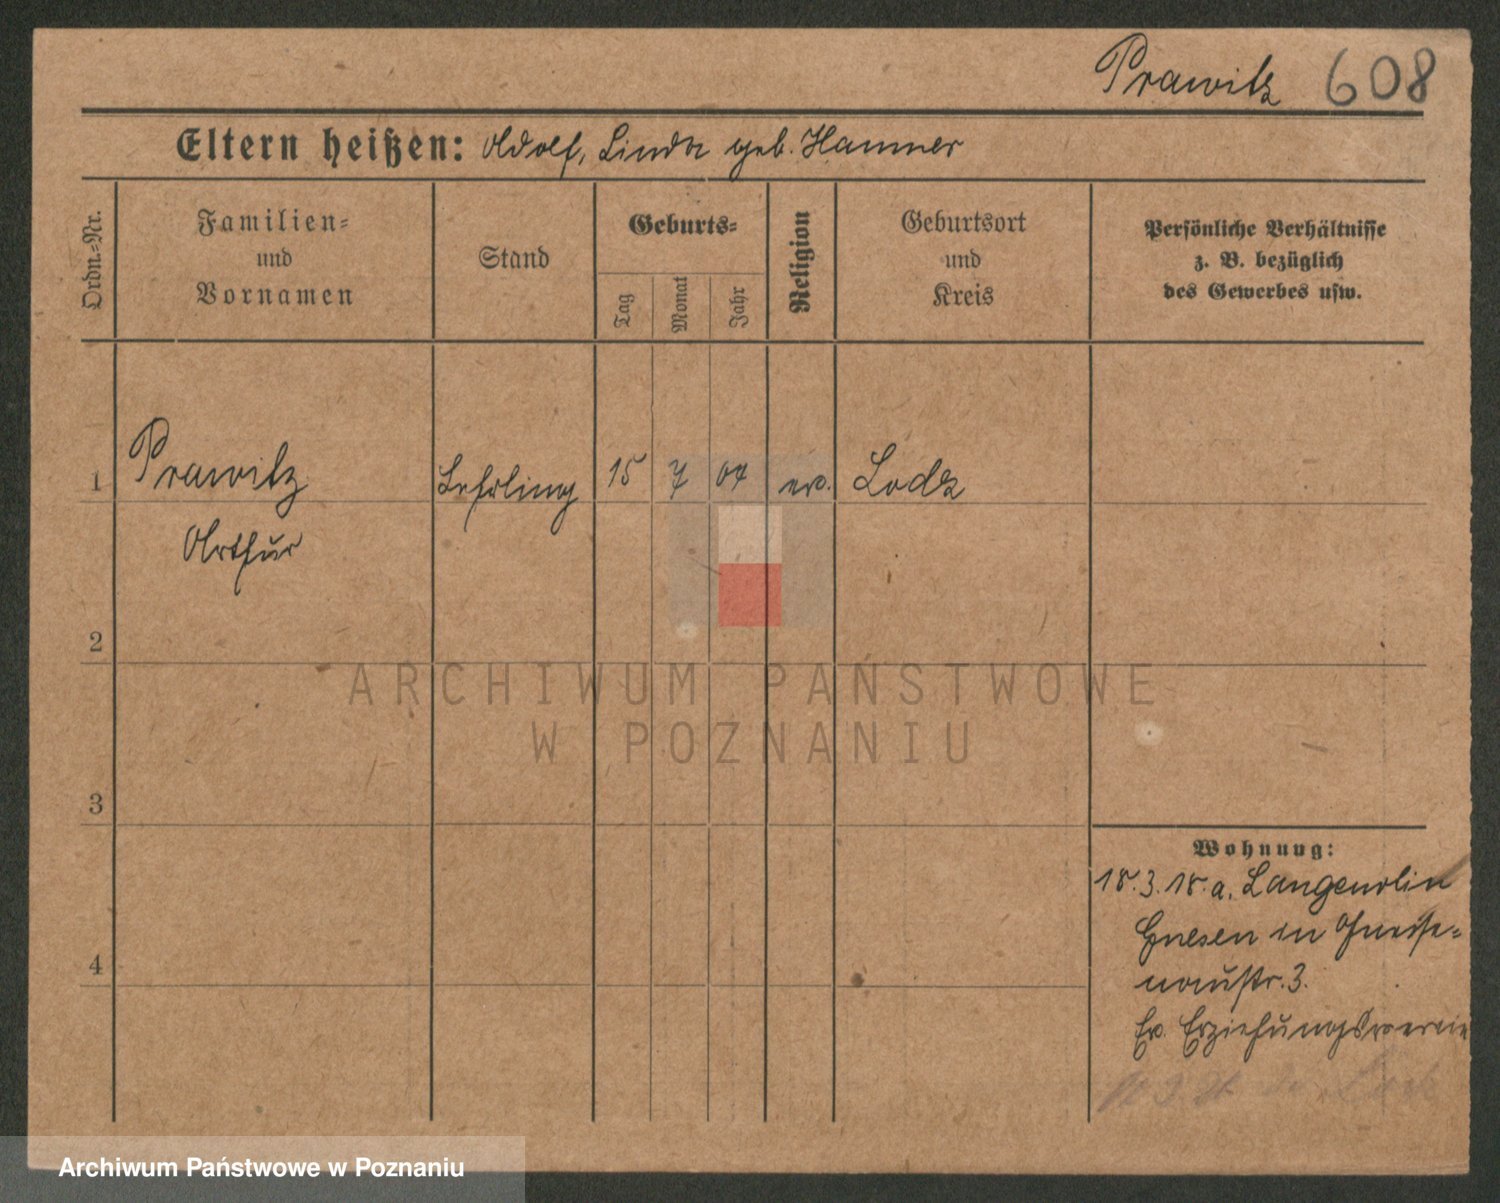 Prawitz 608
Eltern heißen: Adolf, Linda geb. Hammer
Ordn.-Nr.
Familien-
und
Vornamen
Stand
Geburts-
Tag
Monat
Jahr
Religion
Geburtsort
und
Kreis
Persönliche Verhältnisse
z. B. bezüglich
des Gewerbes usw.
1 Prawitz Lehrling 15 7 04 ev. Lodz
Arthur
2
ARCHIWUM PAŃSTWOWE
W POZNANIU
3
Wohnung:
18.3.18. a. Langenolin
Gnesen in Gneise-
naustr. 3.
4
Ev. Erziehungsverein
Archiwum Państwowe w Poznaniu